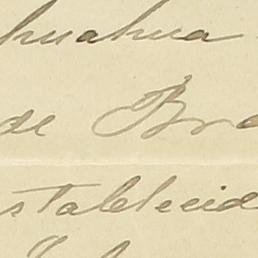 huahua
de Bra
stablecid